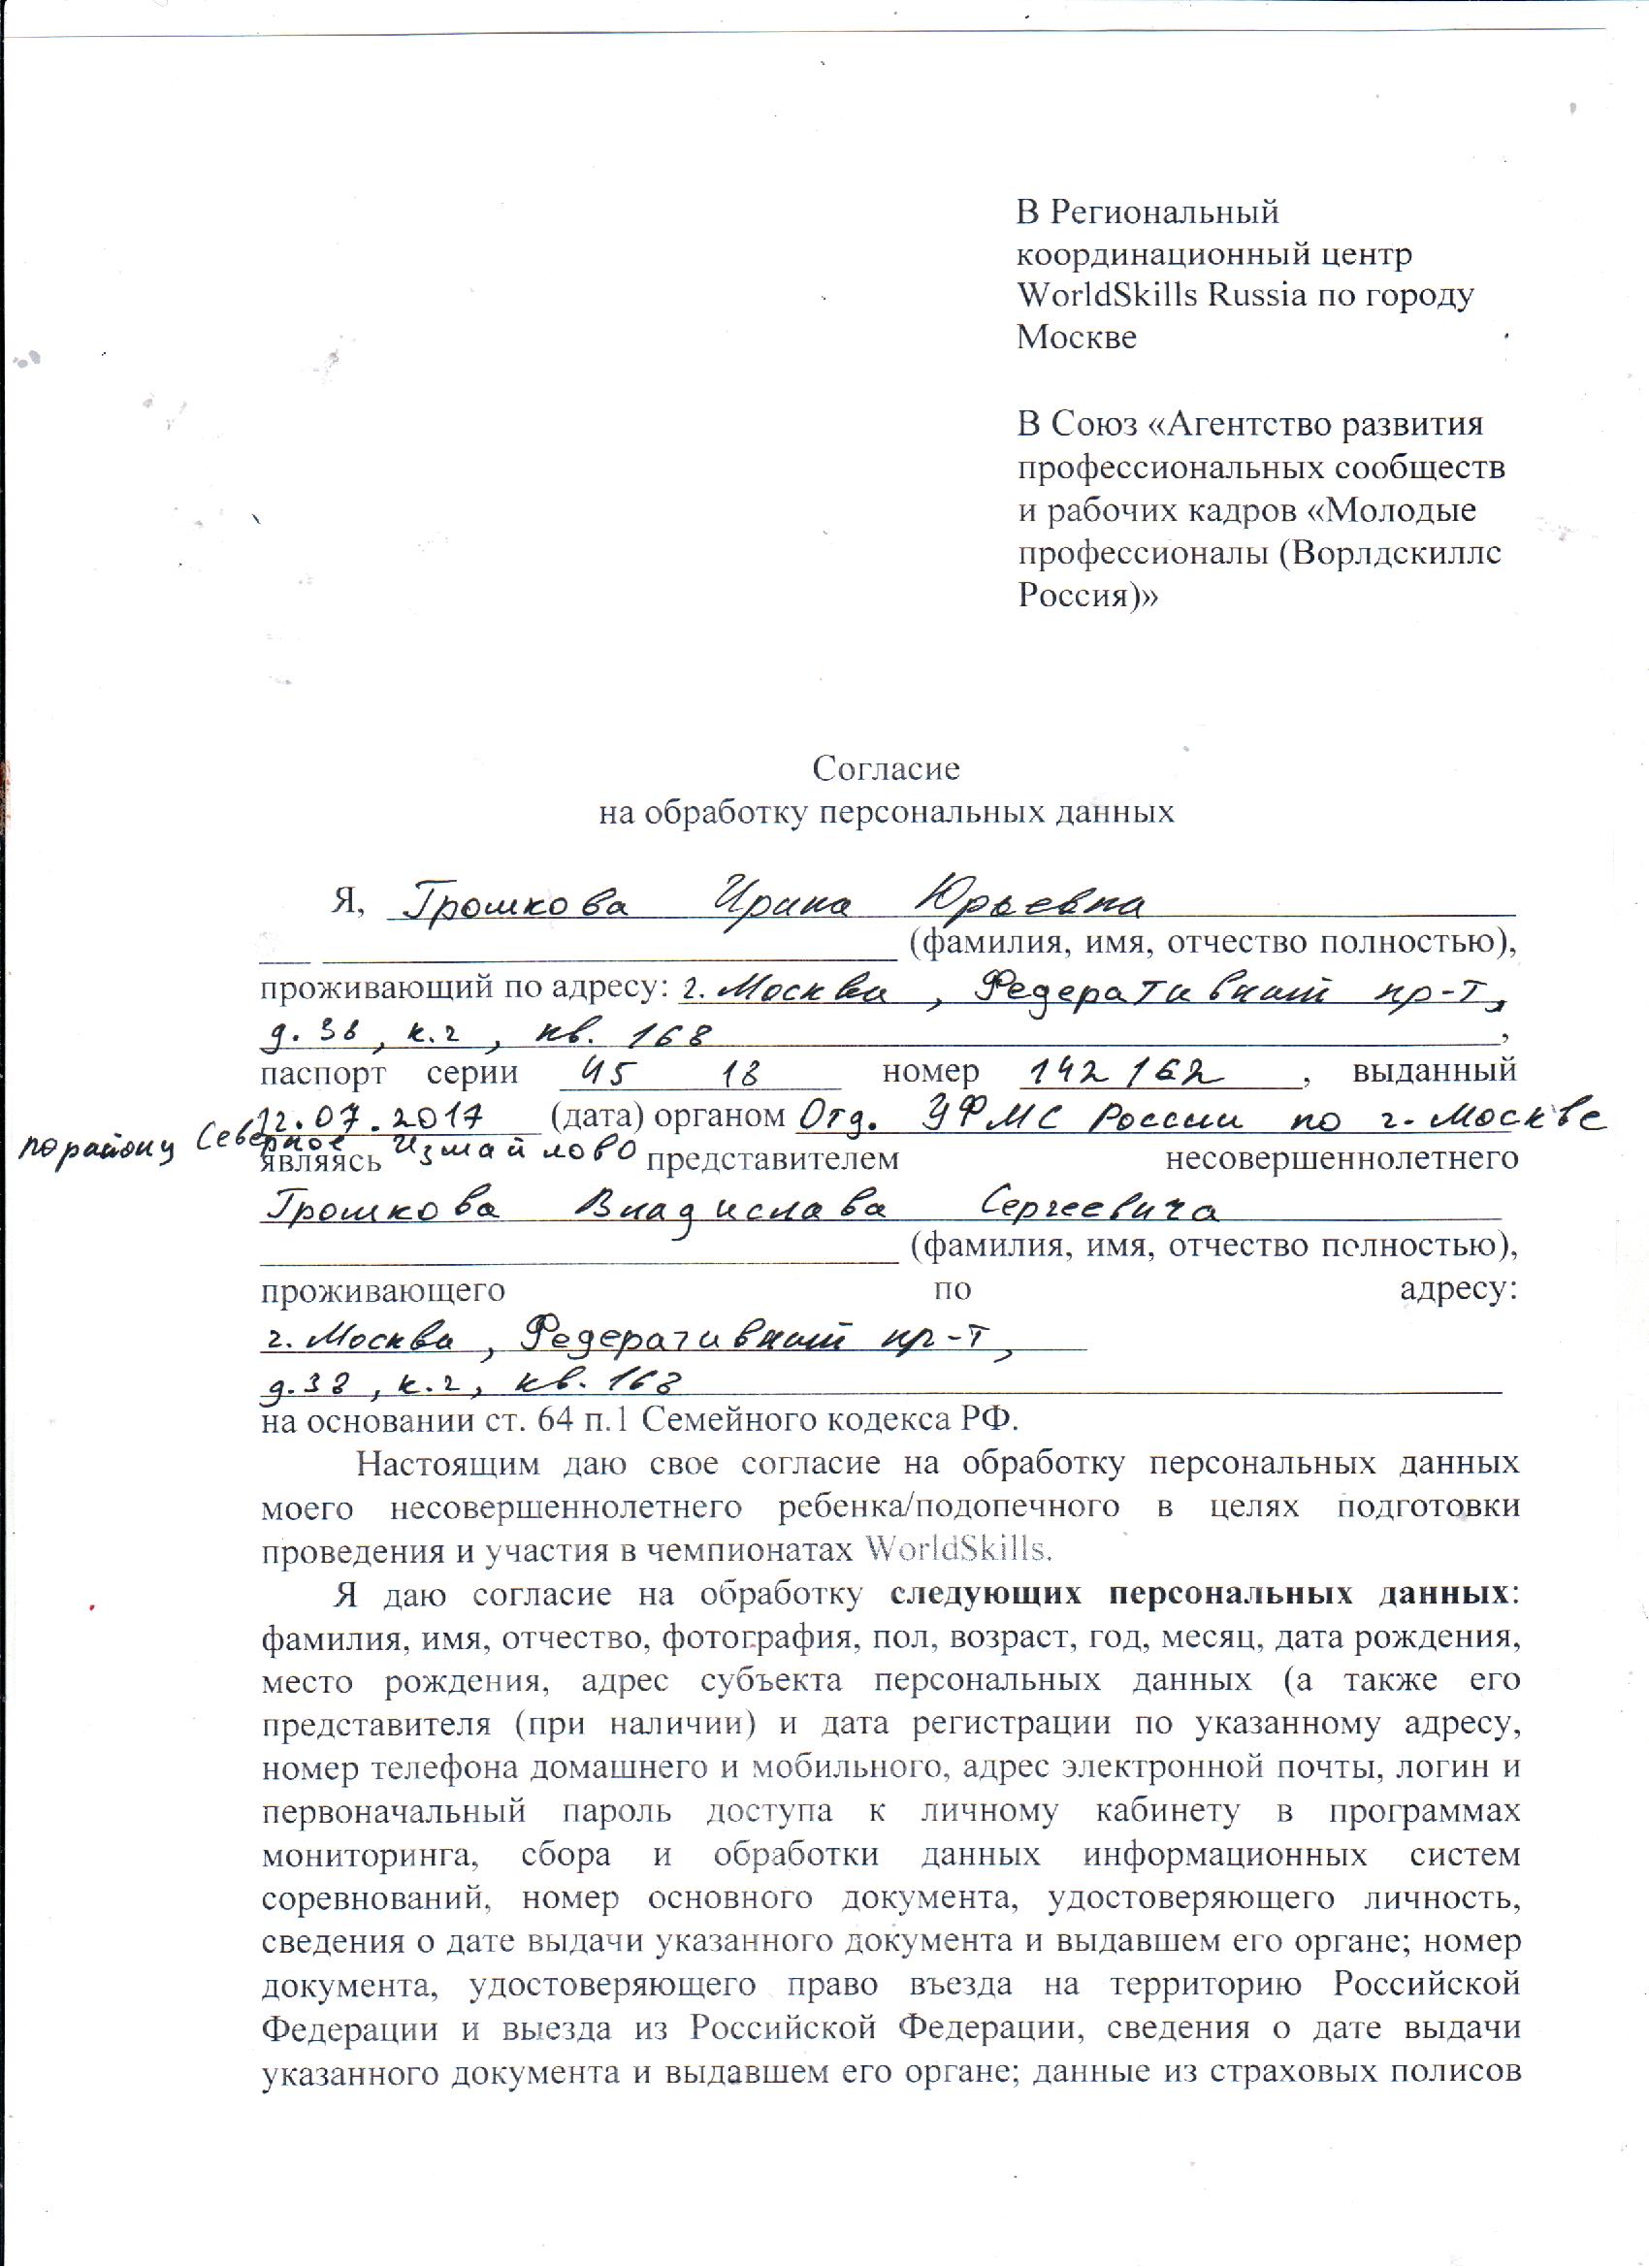 В Региональный
координационный центр
WorldSkills Russia по городу
Москве
В Союз «Агентство развития
профессиональных сообществ
и рабочих кадров «Молодые
профессионалы (Ворлдскиллс
Россия)»
Согласие
на обработку персональных данных
Я, Грошкова Ирина Юрьевна
(фамилия, имя, отчество полностью),
проживающий по адресу: г. Москва, Федеративный пр-т,
д. 38, к. 2, кв. 168,
паспорт серии 45 18 номер 142162, выданный
12.07.2017 (дата) органом Отд. УФМС России по г. Москве
по району Северное Измайлово
являясь представителем несовершеннолетнего
Грошкова Владислава Сергеевича
(фамилия, имя, отчество полностью),
проживающего по адресу:
г. Москва, Федеративный пр-т,
д. 38, к. 2, кв. 168
на основании ст. 64 п.1 Семейного кодекса РФ.
Настоящим даю свое согласие на обработку персональных данных
моего несовершеннолетнего ребенка/подопечного в целях подготовки
проведения и участия в чемпионатах WorldSkills.
Я даю согласие на обработку следующих персональных данных:
фамилия, имя, отчество, фотография, пол, возраст, год, месяц, дата рождения,
место рождения, адрес субъекта персональных данных (а также его
представителя (при наличии) и дата регистрации по указанному адресу,
номер телефона домашнего и мобильного, адрес электронной почты, логин и
первоначальный пароль доступа к личному кабинету в программах
мониторинга, сбора и обработки данных информационных систем
соревнований, номер основного документа, удостоверяющего личность,
сведения о дате выдачи указанного документа и выдавшем его органе; номер
документа, удостоверяющего право въезда на территорию Российской
Федерации и выезда из Российской Федерации, сведения о дате выдачи
указанного документа и выдавшем его органе; данные из страховых полисов